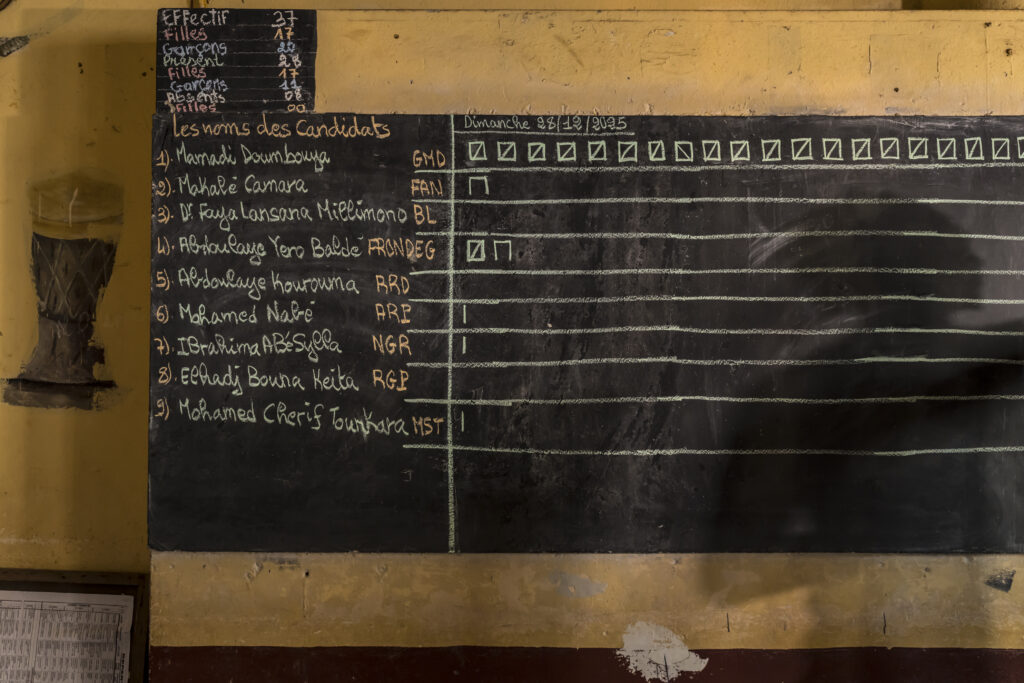 Effectif 37
Filles 17
Garçons 20
Présent 28
Filles 17
Garçons 11
Absents 08
Filles 00
Les noms des Candidats
Dimanche 28/12/2025
1) Mamadi Doumbouya GMD
2). Makalé Camara FAN
3). Dr Faya Lansana Millimono BL
4). Abdoulaye Yero Baldé FRONDEG
5). Abdoulaye Kourouma RRD
6) Mohamed Nabé ARP
7). IBrahima ABéSylla NGR
8). Elhadj Bouna Keita RGP
9) Mohamed Cherif Tounkara MST